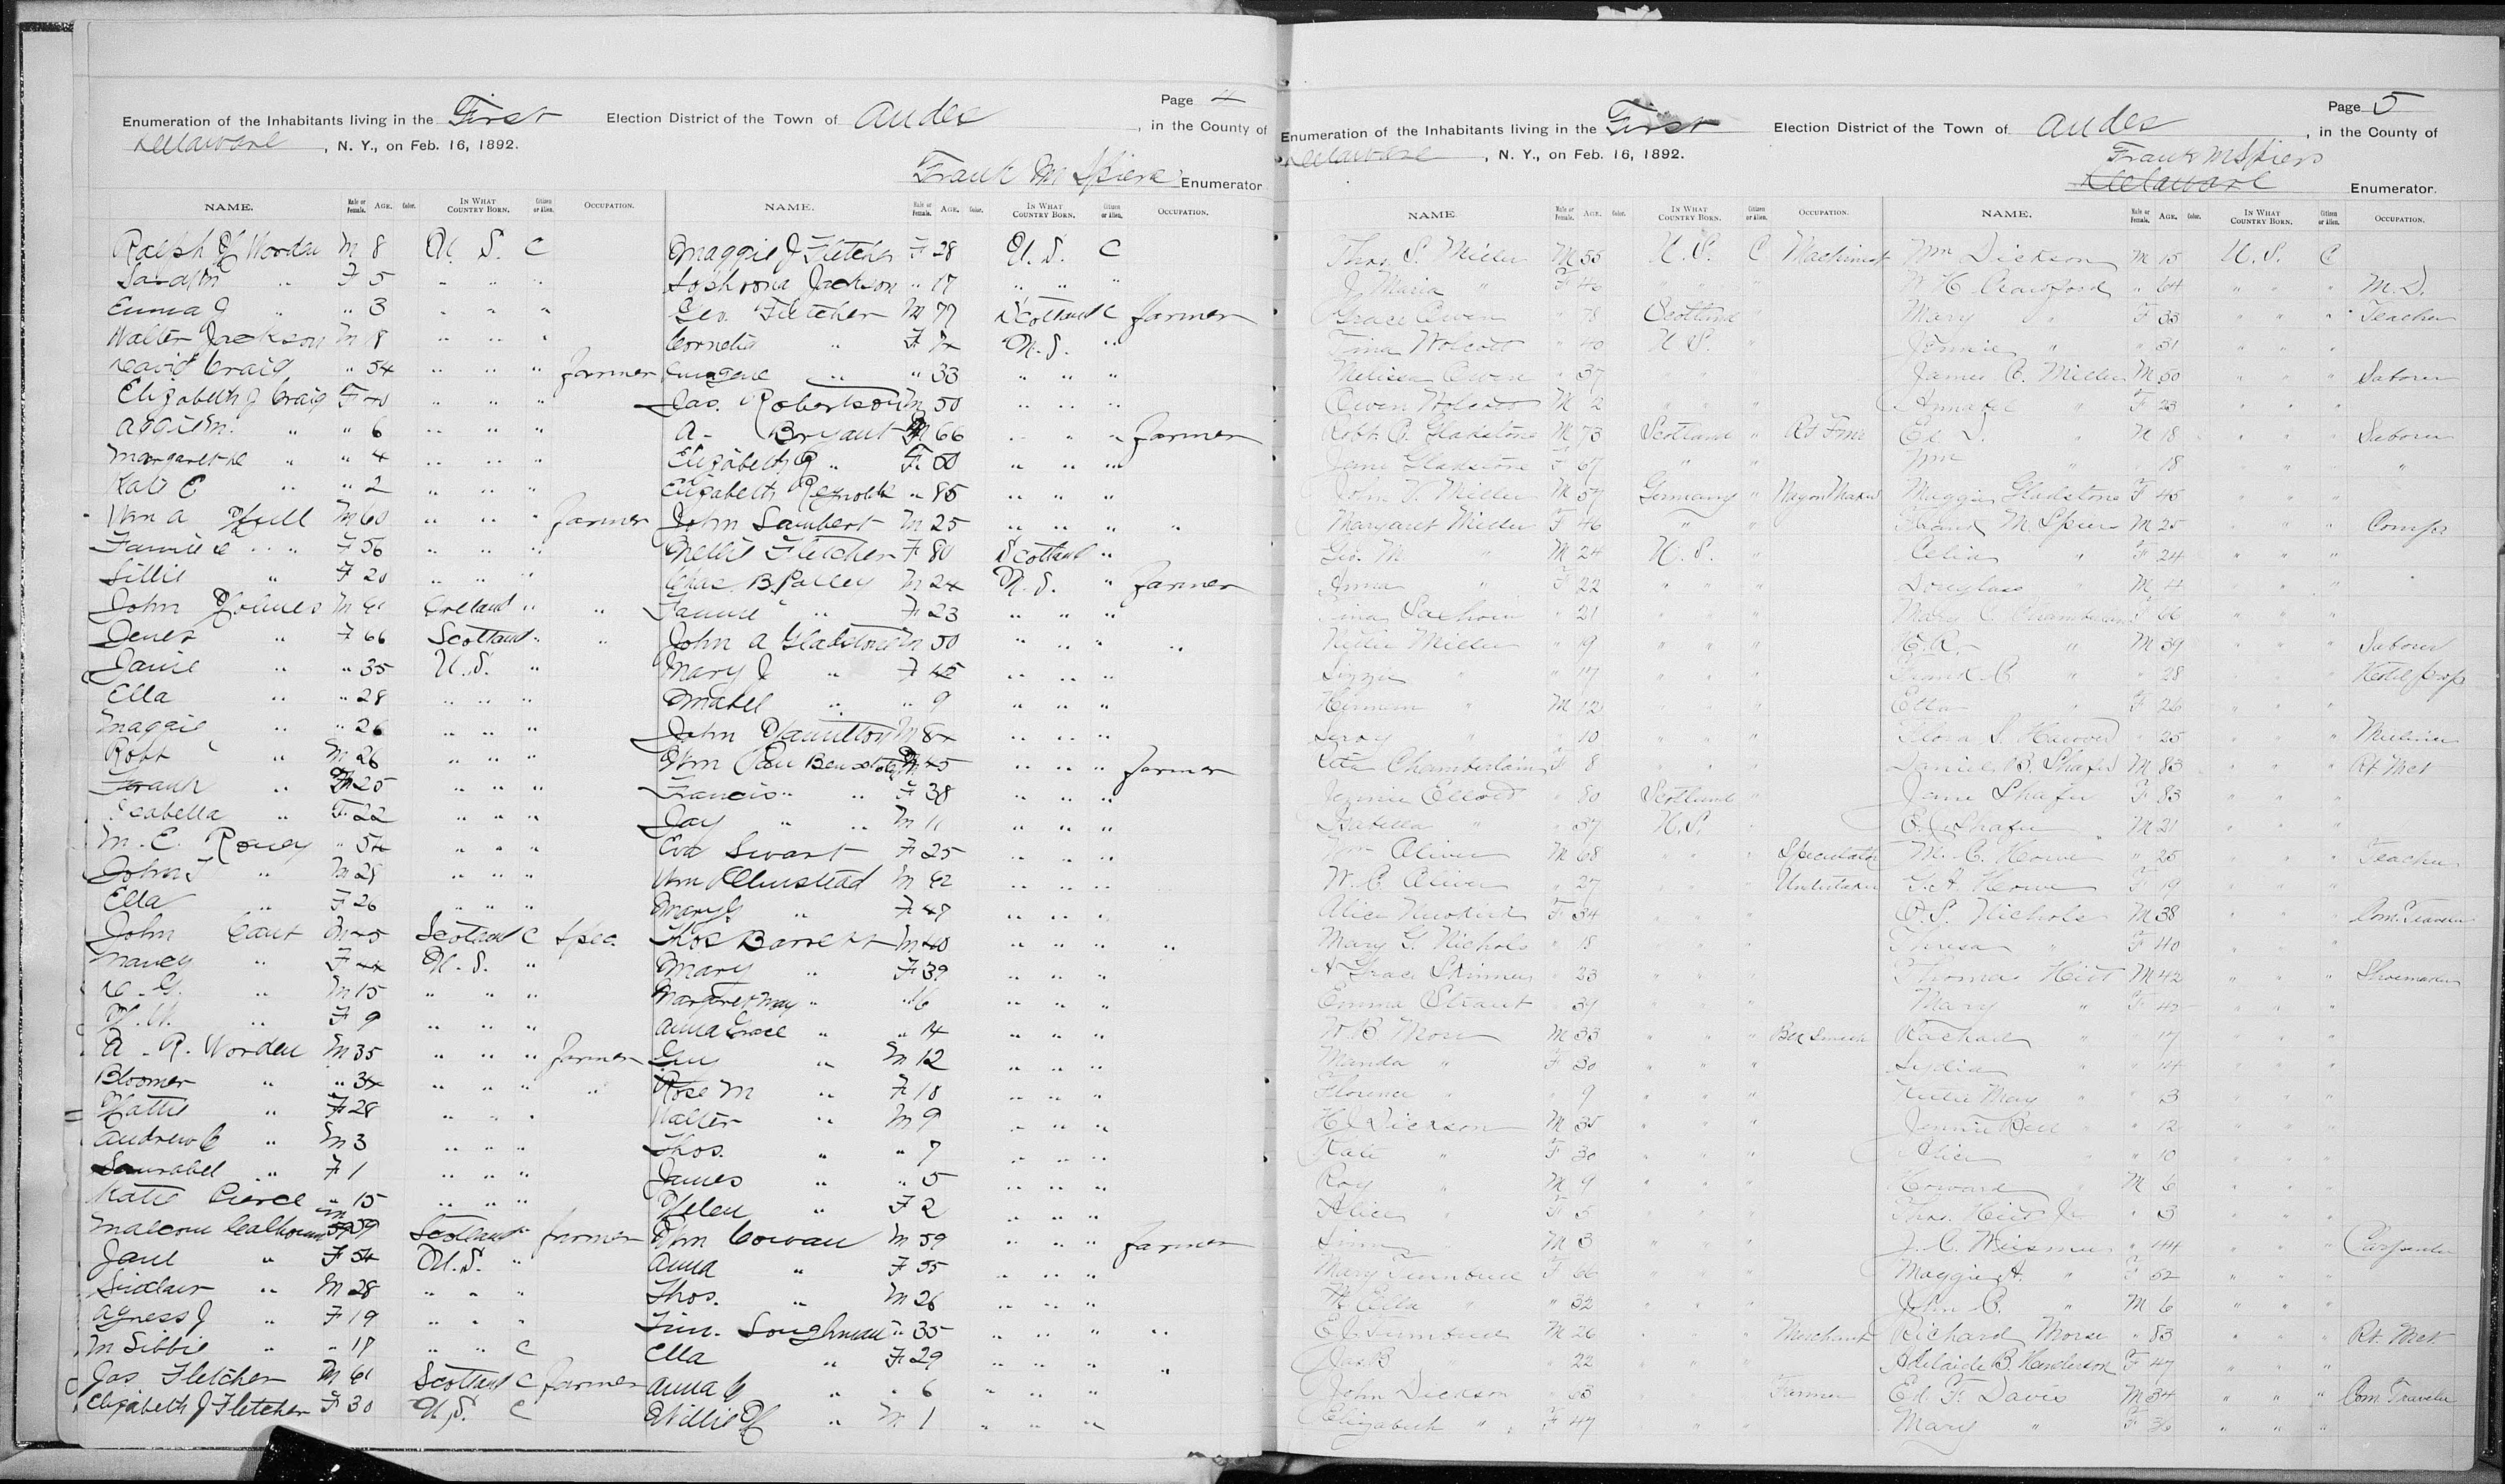 Page 4
Enumeration of the Inhabitants living in the First Election District of the Town of Andes, in the County of
Delaware, N. Y., on Feb. 16, 1892.
Frank M Spiers Enumerator
NAME. Male or Female. AGE. Color. IN WHAT COUNTRY BORN. Citizen or Alien. OCCUPATION.
Ralph H Worden M 8 U. S. C
Sarah M " F 5 " " "
Emma J " " 3 " " "
Walter Jackson M 18 " " "
David Craig " 54 " " " farmer
Elizabeth J Craig F 40 " " "
Aggie M. " " 6 " " "
Margaret " " 4 " " "
Kate E " " 2 " " "
Wm A Hull M 60 " " " farmer
Fannie " F 56 " " "
Lillie " F 20 " " "
John Holmes M 61 Ireland " "
" F 66 Scotland " "
Janie " " 35 U. S. "
Ella " " 28 " " "
Maggie " " 26 " " "
Robt " M 26 " " "
Frank " M 25 " " "
Isabella " F 22 " " "
M. E. Roney " 54 " " "
John T " M 28 " " "
Ella " F 26 " " "
John Cant M Scotland C Spec.
Nancy " F 44 U. S. "
" M 15 " " "
" F 9 " " "
A. R. Worden M 35 " " " farmer
Bloomer " " 34 " " " "
Hattie " F 28 " " "
Andrew C " M 3 " " "
" F 1 " " "
Katie Pierce " 15 " " "
Malcom Calhoun M 59 Scotland " farmer
Jane " F 54 U. S. "
Sinclair " M 28 " " "
Agness J " F 19 " " "
M Libbie " " 17 " " C
Jas Fletcher M 61 Scotland C farmer
Elizabeth J Fletcher F 30 U. S. C
NAME. Male or Female. AGE. Color. IN WHAT COUNTRY BORN. Citizen or Alien. OCCUPATION.
Maggie J Fletcher F 28 U. S. C
Sophrona Jackson " 17 " " "
Geo. Fletcher M 77 Scotland C farmer
Cornelia " F 74 U. S. "
Imogene " " 33 " " "
Jas. Robertson M 50 " " "
A. Bryant M 66 " " " farmer
Elizabeth " F 50 " " "
Elizabeth Reynolds " 85 " " "
John Lambert M 25 " " " "
Nellie Fletcher F 80 Scotland "
Chas B. Polley M 24 U. S. " farmer
Fannie " F 23 " " "
John A Gladstone M 50 " " " "
Mary J " F 45 " " "
Mabel " " 9 " " "
John Hamilton M 84 " " "
Wm Van Benschoten M 45 " " " farmer
Francis " " F 38 " " "
Jay " " M 11 " " "
Eva Swart F 25 " " "
Wm Olmstead M 42 " " "
Mary " F 47 " " "
Thos Barrett M 40 " " " "
Mary " F 39 " " "
Margaret May " " 16 " " "
Anna Grace " " 14 " " "
Guy " M 12 " " "
Rose M " F 10 " " "
Walter " M 9 " " "
Thos. " " 7 " " "
James " " 5 " " "
Helen " F 2 " " "
Wm Cowan M 59 " " " farmer
Anna " F 55 " " "
Thos. " M 26 " " "
Tim. Loughman " 35 " " " "
Ella " F 29 " " " "
Anna " " 6 " " "
Willie H " M 1 " " "
Page 5
Enumeration of the Inhabitants living in the First Election District of the Town of Andes, in the County of
Delaware, N. Y., on Feb. 16, 1892.
Frank M Spiers
Delaware Enumerator.
NAME. Male or Female. AGE. Color. IN WHAT COUNTRY BORN. Citizen or Alien. OCCUPATION.
Thos. S. Miller M 55 U. S. C Machinist
J. Maria " F 46 " " "
Grace Owen " 78 Scotland "
Tina Wolcott " 40 U. S. "
Melissa Owen " 37 " " "
Owen Wolcott M 2 " " "
Robt. Gladstone M 73 Scotland " Rt Fmr
Jane Gladstone F 67 " "
John V. Miller M 57 Germany " Wagon Maker
Margaret Miller F 46 " "
Geo. M " M 24 U. S.
Anna " F 22 " " "
Tina " 21 " " "
Nellie Miller " 19 " " "
Lizzie " " 17 " " "
Herman " M 12 " " "
Leroy " " 10 " " "
Chamberlain F 8 " " "
Jennie Elliott " 80 Scotland "
Isabella " " 37 U. S. "
Wm Oliver M 68 " " " Speculator
W. C. Oliver " 27 " " " Undertaker
Alice Newkirk F 34 " " "
Mary G. Nichols " 18 " " "
A Grace Skinner " 23 " " "
Emma Strant " 39 " " "
W. B. More M 33 " " " Blk Smith
Manda " F 30 " " "
Florence " " 9 " " "
H. J. Dickson M 35 " " "
Kate " F 30 " " "
Roy " M 9 " " "
Alice " F 5 " " "
" M 3 " " "
Mary Turnbull F 66 " " "
Ella " " 32 " " "
E. J. Turnbull M 26 " " " Merchant
Jas B " " 22 " " "
John Dickson " 53 " " " Farmer
Elizabeth " F 47 " "
NAME. Male or Female. AGE. Color. IN WHAT COUNTRY BORN. Citizen or Alien. OCCUPATION.
Wm Dickson M 15 U. S. C
W. H. Crawford " 64 " " " M. D.
Mary " F 33 " " " Teacher
Jennie " " 31 " " "
James C. Miller M 50 " " " Laborer
Annabel " F 23 " " "
Ed. S. " M 18 " " " Laborer
Wm " " 18 " " " "
Maggie Gladstone F 45 " " "
Frank M. Spiers M 25 " " " Comps
Celia " F 24 " " "
Douglass " M 4 " " "
Mary E. Chamberlain F 66 " " "
E. R. " M 39 " " " Laborer
Frank C. " " 28 " " " Hotel prop
Etta " F 26 " " "
Flora S. " 25 " " " Milliner
Daniel B. Shafer M 83 " " " Rt Mct
Jane Shafer F 83 " " "
Shafer M 21 " " "
M. C. Howe " 25 " " " Teacher
Howe F 19 " " "
O. S. Nichols M 38 " " " Com. Traveler
Thresa " F 40 " "
Thomas Hitt M 42 " " " Shoemaker
Mary " F 42 " " "
Rachael " " 17 " " "
Lydia " " 14 " " "
May " " 13 " " "
Jennie Bell " " 12 " " "
Alice " " 10 " " "
Howard " M 6 " " "
Thos. Hitt Jr. " 3 " " "
J. C. " 44 " " " Carpenter
Maggie A. " F 52 " " "
John C. " M 6 " " "
Richard Morse " 83 " " " Rt. Mct.
Adelaide B. Henderson F 47 " " "
Ed. F. Davis M 34 " " " Com. Traveler
Mary " F 30 " " "